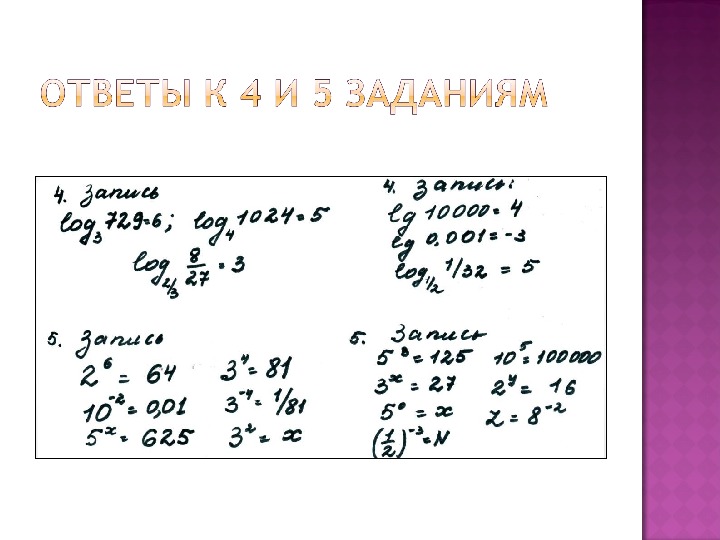 ОТВЕТЫ К 4 И 5 ЗАДАНИЯМ
4. Запись
log₃729=6; log₄1024=5
log₂/₃ 8/27 = 3
4. Запись:
lg 10000 = 4
lg 0,001 = -3
log₁/₂ 1/32 = 5
5. Запись
2⁶ = 64 3⁴ = 81
10⁻² = 0,01 3⁻⁴ = 1/81
5ˣ = 625 3² = x
5. Запись
5³ = 125 10⁵ = 100000
3ˣ = 27 2ʸ = 16
5⁰ = x Z = 8⁻²
(1/2)⁻³ = N